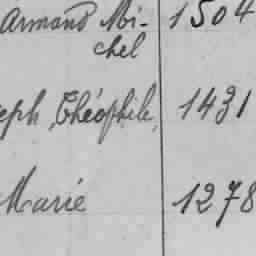 Armand Mi- 1504
chel
eph, Théophile, 1431
Marie 1278